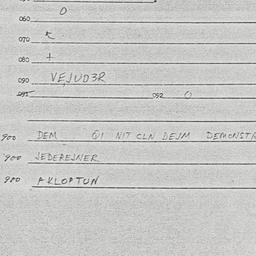 060 O
070
080 +
090 VEJUD3R
095 092 O
900 DEM QI NIT CLN DEJM DEMONSTR
900 JEDEREJNER
900 AKLOPTUN